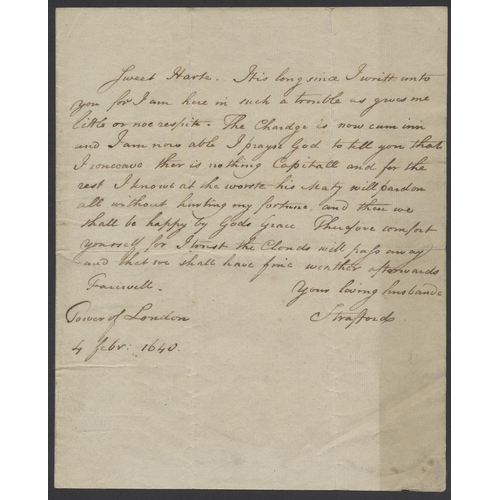 Sweet Harte. It is long since I writt unto
you for I am here in such a trouble as gives me
little or noe respite. The Chardge is now cum inn
and I am now able I prayse God to tell you that
I conceave ther is nothing Capitall and for the
rest I knowe at the worste his Maty will pardon
all without hurting my fortune. and then we
shall be happy by Gods Grace Therefore comfort
yourself for I trust the Clouds will pass away
and that we shall have fine weather afterwards
Farewell.
Your loving husbande
Tower of London
Strafford.
4 febr: 1640.